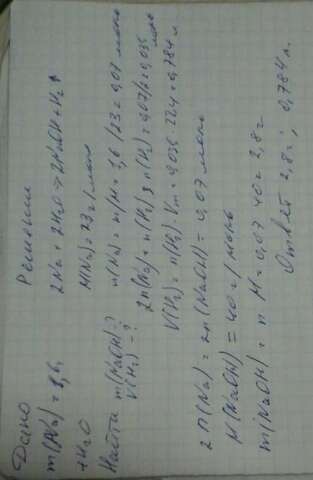 Дано
m(Na) = 1,6г
+ H2O
Найти m(NaOH)=?
V(H2) = ?
Решение
2Na + 2H2O → 2NaOH + H2↑
M(Na) = 23 г/моль
n(Na) = m/M = 1,6/23 = 0,07 моль
2n(Na) = n(H2) n(H2) = 0,07/2 = 0,035 моль
V(H2) = n(H2) · Vm = 0,035 · 22,4 = 0,784 л
2n(Na) = 2n(NaOH) = 0,07 моль
M(NaOH) = 40 г/моль
m(NaOH) = n · M = 0,07 · 40 = 2,8 г
Ответ 2,8г; 0,784л.